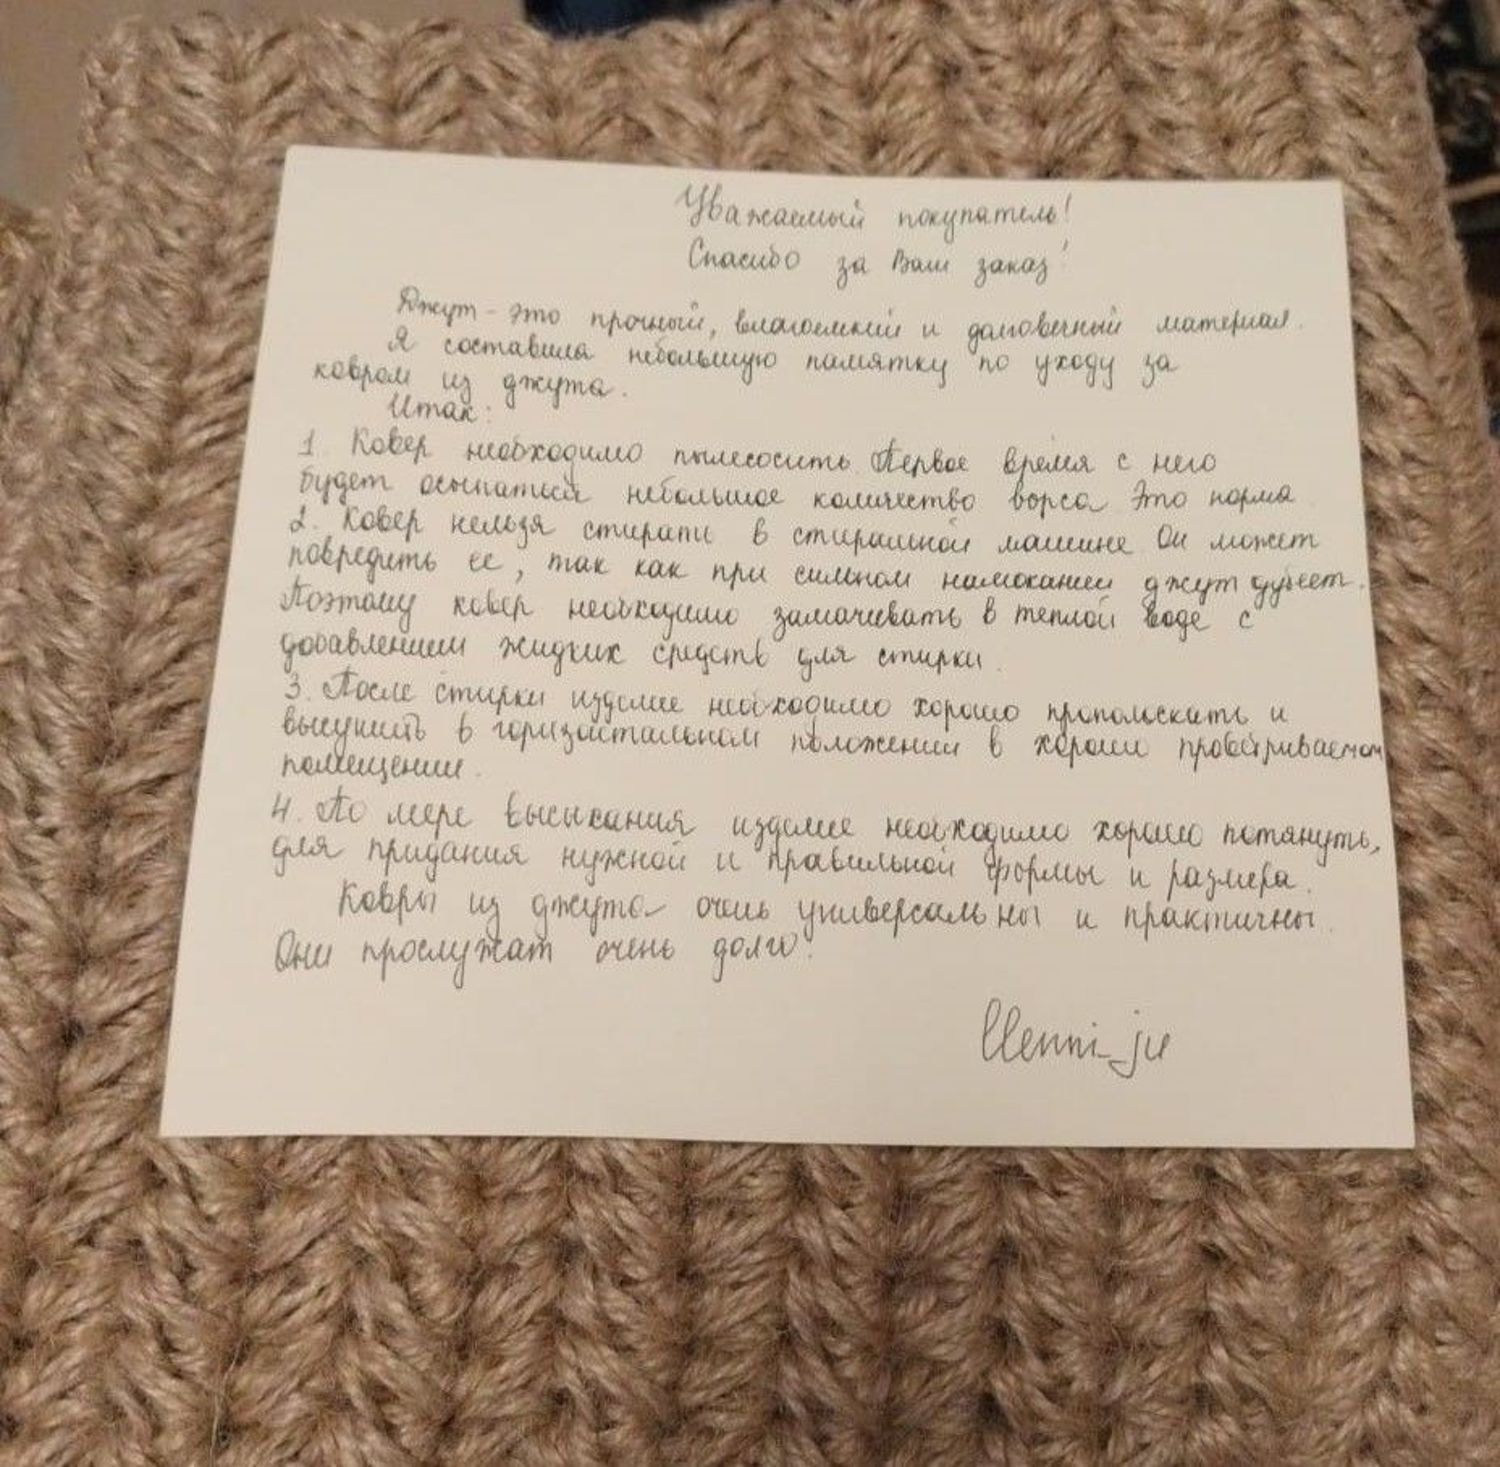 Уважаемый покупатель!
Спасибо за Ваш заказ!
Джут - это прочный, влагоемкий и долговечный материал.
Я составила небольшую памятку по уходу за
ковром из джута.
Итак:
1. Ковер необходимо пылесосить. Первое время с него
будет осыпаться небольшое количество ворса. Это норма.
2. Ковер нельзя стирать в стиральной машине. Он может
повредить ее, так как при сильном намокании джут дубеет.
Поэтому ковер необходимо замачивать в теплой воде с
добавлением жидких средств для стирки.
3. После стирки изделие необходимо хорошо прополоскать и
высушить в горизонтальном положении в хорошо проветриваемом
помещении.
4. По мере высыхания изделие необходимо хорошо потянуть,
для придания нужной и правильной формы и размера.
Ковры из джута очень универсальны и практичны.
Они прослужат очень долго!